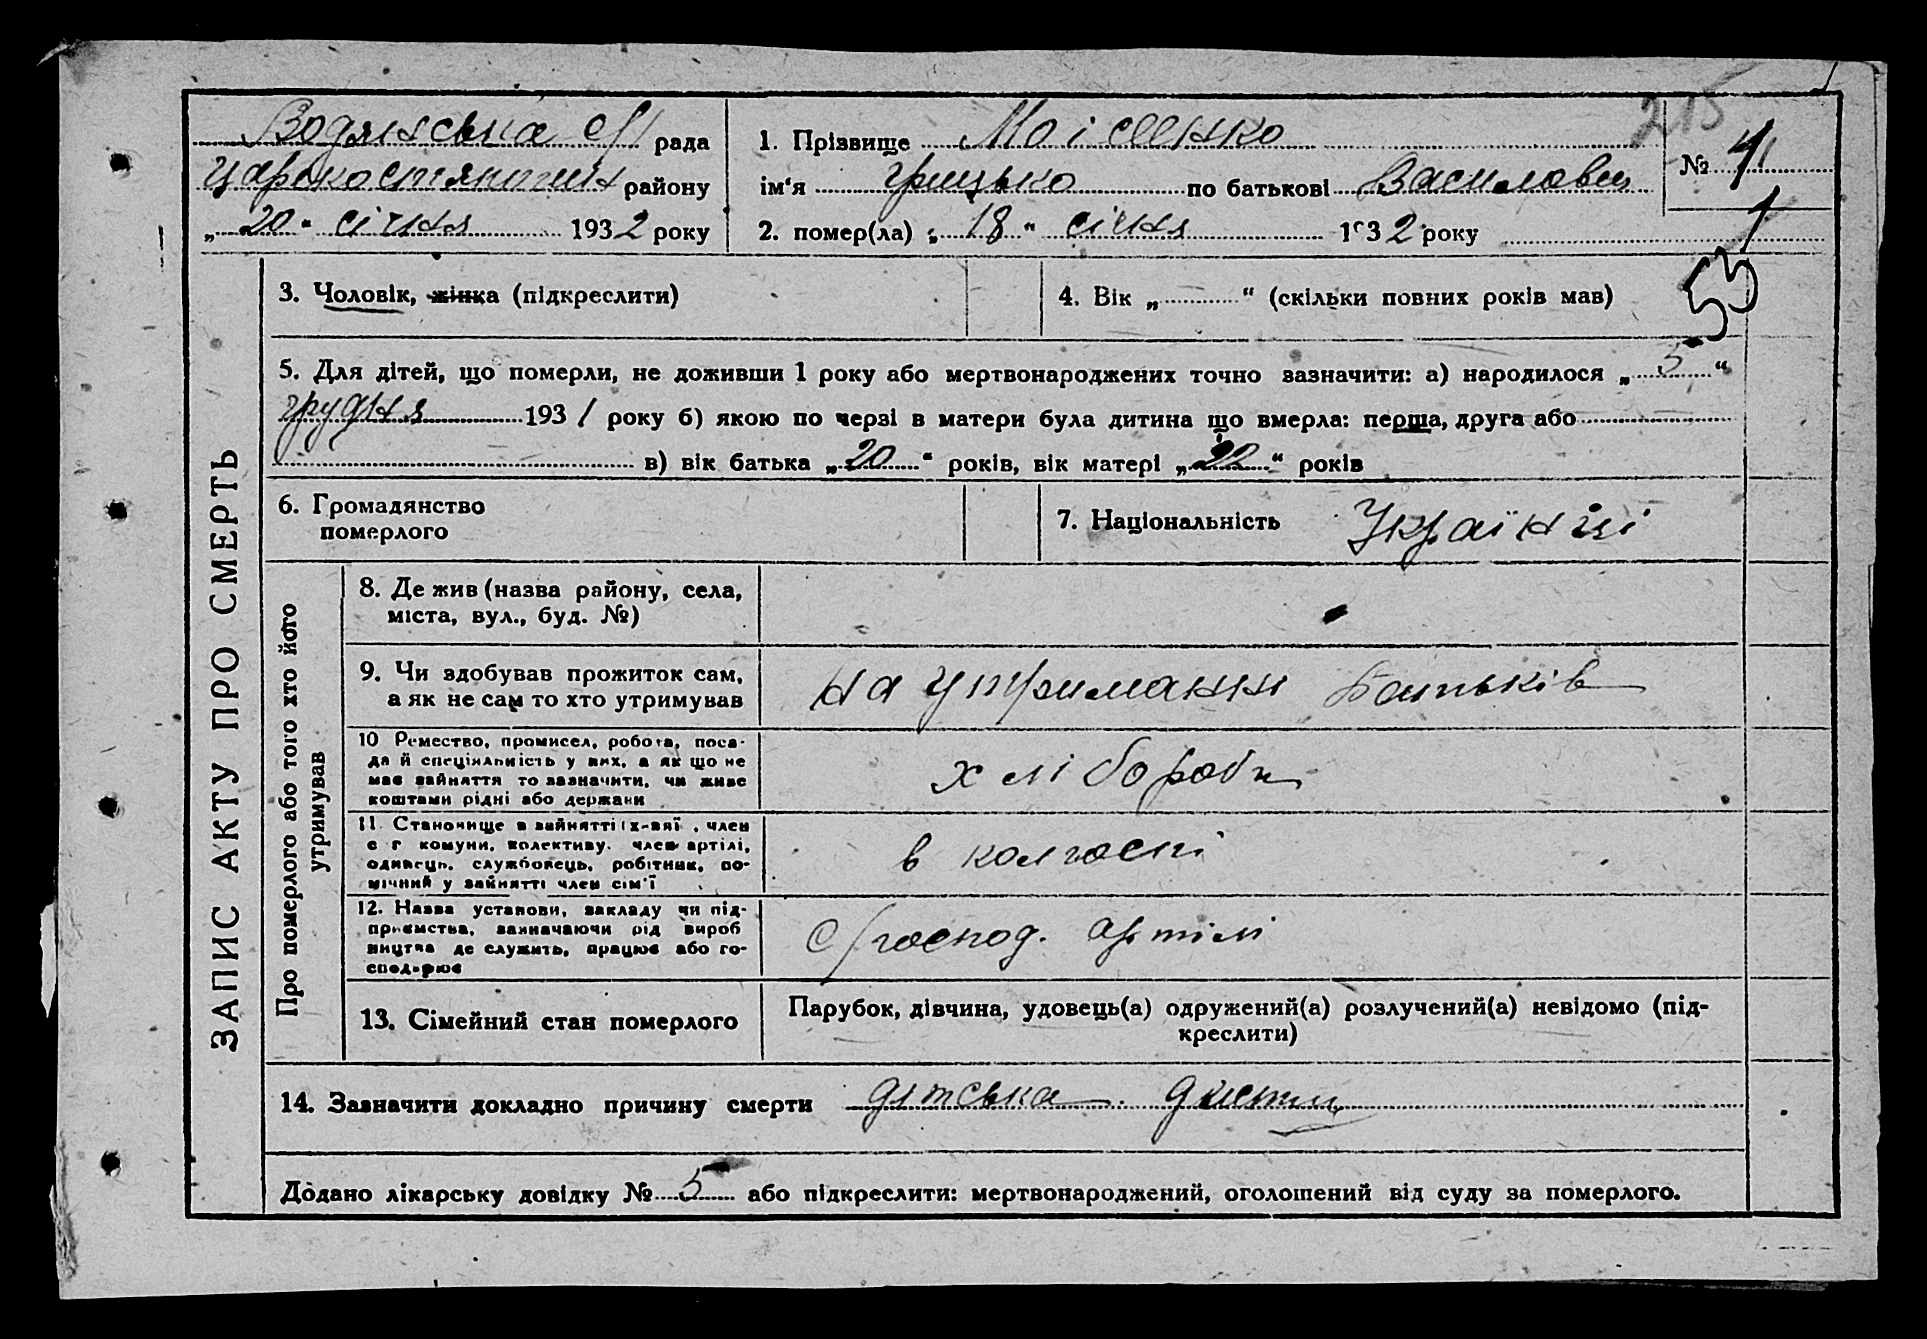 215
Водянська с/ рада
Царокостянтинів району
„20“ січня 1932 року
1. Прізвище Моісеенко
ім‘я Грицько по батькові Василович
2. помер(ла) „18“ січня 1932 року
№ 4
53
3. Чоловік, жінка (підкреслити)
4. Вік „ “ (скільки повних років мав)
5. Для дітей, що померли, не доживши 1 року або мертвонароджених точно зазначити: а) народилося „5“
грудня 1931 року б) якою по черзі в матери була дитина що вмерла: перша, друга або
в) вік батька „20“ років, вік матері „22“ років
6. Громадянство
померлого
7. Національність Українці
ЗАПИС АКТУ ПРО СМЕРТЬ
Про померлого або того хто його
утримував
8. Де жив (назва району, села,
міста, вул., буд. №)
9. Чи здобував прожиток сам,
а як не сам то хто утримував
на утриманні батьків
10 Ремество, промисел, робота, поса-
да й спеціяльність у них, а як що не
має зайняття то зазначити, чи живе
коштами рідні або держави
хлібороби
11. Становище в зайнятті (х-ваї, член
с г комуни, колективу, член артілі,
одинець, службовець, робітник, по-
мічний у зайнятті член сім'ї
в колгоспі
12. Назва установи, закладу чи під-
приємства, зазначаючи рід вироб
ництва де служить, працює або го-
сподарює
с/господ. артілі
13. Сімейний стан померлого
Парубок, дівчина, удовець(а) одружений(а) розлучений(а) невідомо (під-
креслити)
14. Зазначити докладно причину смерти дітська
Додано лікарську довідку № 5 або підкреслити: мертвонароджений, оголошений від суду за померлого.